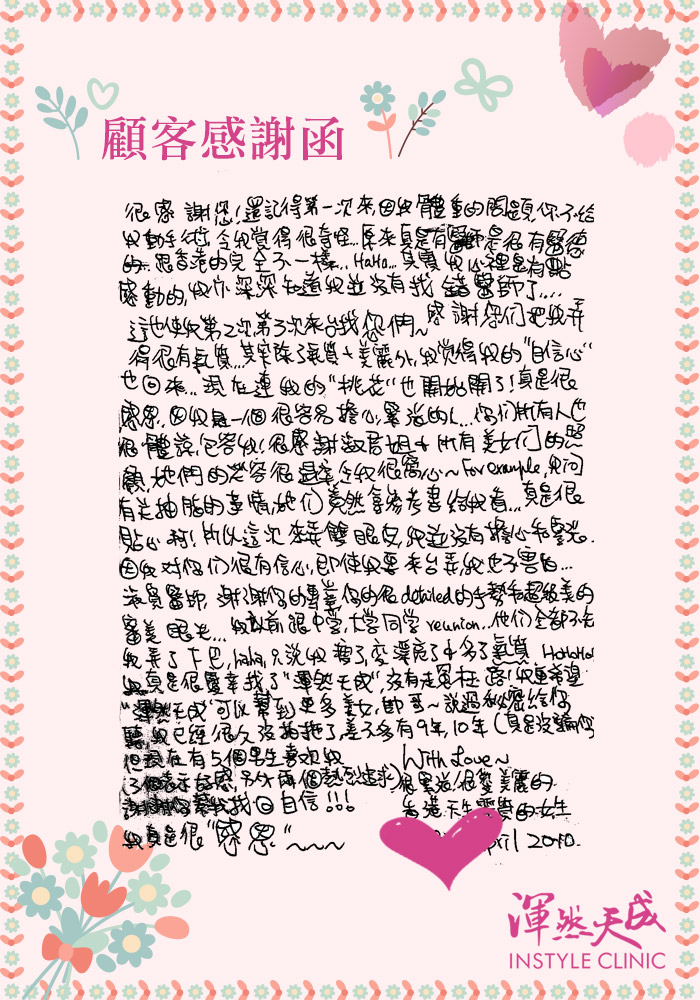 顧客感謝函
很感謝您!還記得第一次來,因我體重的問題,你不給
我動手術,令我覺得很奇怪...原來真是有醫師是很有醫德
的...跟香港的完全不一樣... HaHa... 其實我心裡是有點
感動的,我亦深深知道我並沒有找錯醫師了....
這也使我第2次第3次來台找您們~ 感謝您们把我弄
得很有氣質...其实除了氣質+美麗外,我觉得我的"自信心"
也回來...現在連我的"桃花"也開始開了!真是很
感恩,因我是一個很容易擔心,緊張的人...你们所有人也
很體諒,包容我!很感謝淑君姐+所有美女们的照
顧,她們的笑容很是令我很窩心~ For example,我问
有关抽脂的事情,她们竟然拿參考書給我看...真是很
貼心啊!所以這次來弄雙眼皮,我並沒有擔心和緊张.
因我对你们很有信心,即使我要來台弄,我也不害怕...
醫師,謝謝你的專業,你的很detailed的手勢和超級美的
審美眼光... 我以前跟中學,大學同学 reunion...他们全部不知
我弄了下巴, haha,只說我瘦了,变漂亮了+多了氣質 HaHaHa
我真是很慶幸找了"渾然天成",沒有走冤枉路!我更希望
"渾然天成"可以幫到更多美女,即哥~說過秘密給你
聽,我已經很久沒拍拖了,差不多有9年,10年(真是沒騙你)
但現在有5個男生喜欢我
(3個表示好感,另外兩個熱烈追求)
謝謝你幫我找回自信!!!
我真是很"感恩"~~~
With Love~
很緊張/很愛美麗的
香港天生麗質的女生
pril 2010.
渾然天成
INSTYLE CLINIC